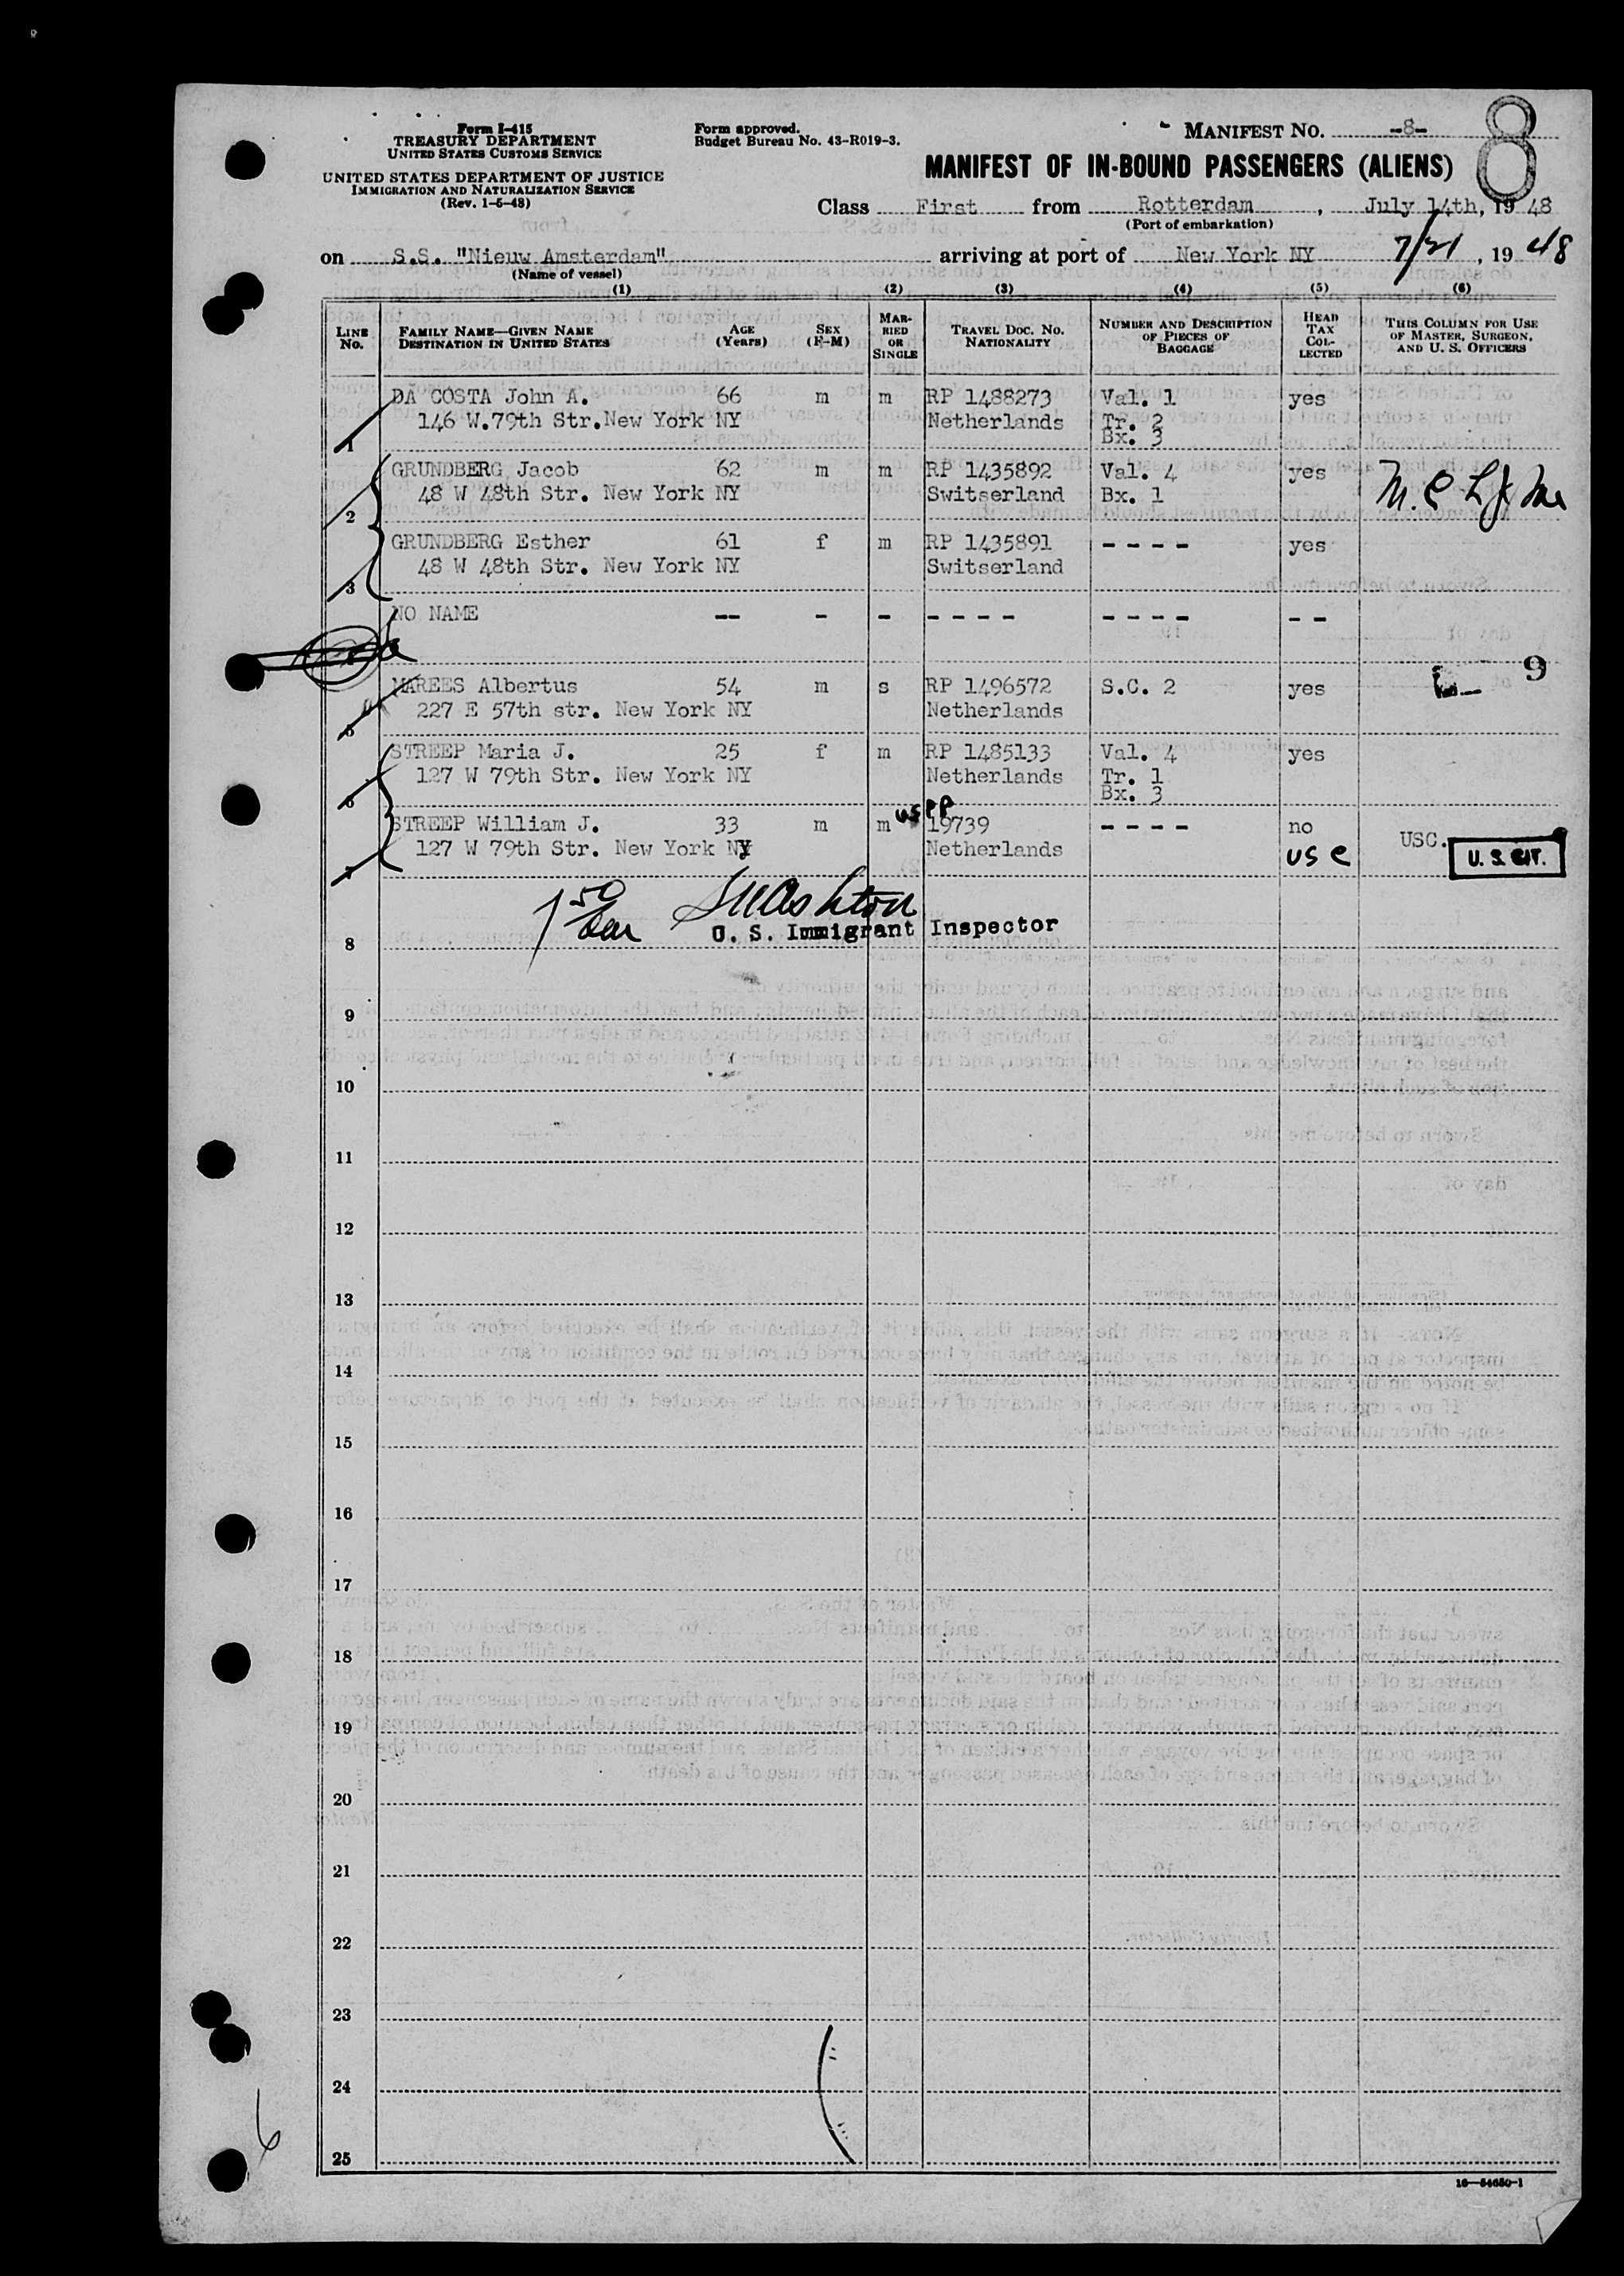 Form I-415
TREASURY DEPARTMENT
UNITED STATES CUSTOMS SERVICE
UNITED STATES DEPARTMENT OF JUSTICE
IMMIGRATION AND NATURALIZATION SERVICE
(Rev. 1-5-48)
Form approved.
Budget Bureau No. 43-R019-3.
MANIFEST NO. -8- 8
MANIFEST OF IN-BOUND PASSENGERS (ALIENS)
Class First from Rotterdam, July 14th, 19 48
(Port of embarkation)
on S.S. "Nieuw Amsterdam" arriving at port of New York NY 7/21, 19 48
(Name of vessel)
(1) (2) (3) (4) (5) (6)
LINE No. FAMILY NAME—GIVEN NAME DESTINATION IN UNITED STATES AGE (Years) SEX (F-M) MARRIED OR SINGLE TRAVEL DOC. NO. NATIONALITY NUMBER AND DESCRIPTION OF PIECES OF BAGGAGE HEAD TAX COLLECTED THIS COLUMN FOR USE OF MASTER, SURGEON, AND U. S. OFFICERS
DA COSTA John A. 66 m m RP 1488273 Val. 1 yes
146 W.79th Str.New York NY Netherlands Tr. 2
1 Bx. 3
GRUNDBERG Jacob 62 m m RP 1435892 Val. 4 yes
48 W 48th Str. New York NY Switserland Bx. 1
2
GRUNDBERG Esther 61 f m RP 1435891 - - - - yes
48 W 48th Str. New York NY Switserland
3
NO NAME -- - - - - - - - - - - - -
9
MAREES Albertus 54 m s RP 1496572 S.C. 2 yes
227 E 57th str. New York NY Netherlands
5
STREEP Maria J. 25 f m RP 1485133 Val. 4 yes
127 W 79th Str. New York NY Netherlands Tr. 1
6 Bx. 3
US PP
STREEP William J. 33 m m 19739 - - - - no USC.
127 W 79th Str. New York NY Netherlands USC U. S. CIT.
7
U. S. Immigrant Inspector
8
9
10
11
12
13
14
15
16
17
18
19
20
21
22
23
24
25
6
16—54650-1